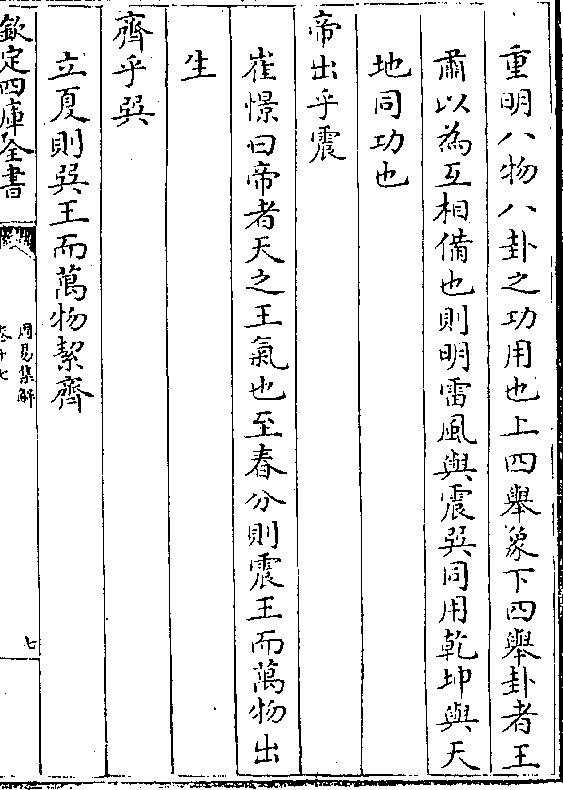 重明八物八卦之功用也上四舉象下四舉卦者王
肅以為互相備也則明雷風與震巽同用乾坤與天
地同功也
帝出乎震
崔憬曰帝者天之王氣也至春分則震王而萬物出
生
齊乎巽
立夏則巽王而萬物絜齊
欽定四庫全書
周易集解
卷十七
七